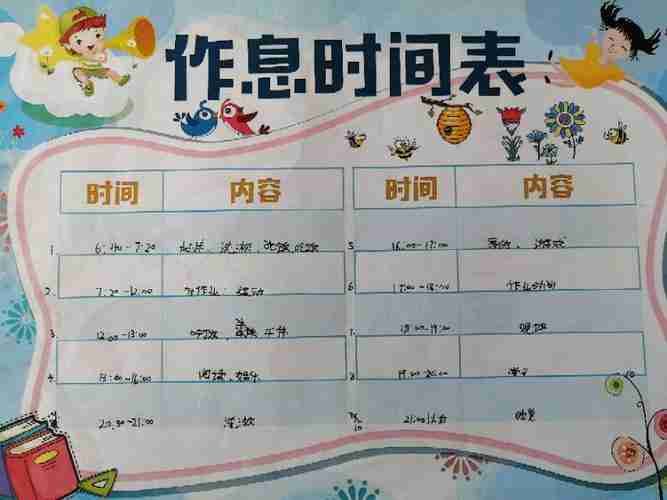 作息时间表
时间 内容 时间 内容
1. 6:40-7:20 起床、洗漱、吃饭 5 16:00-17:00 游戏
2. 7:20-12:00 写作业、运动 6. 17:00-18:00 作业
3. 12:00-13:00 吃饭 午休 7. 18:00-19:00 晚饭
4. 13:00-16:00 阅读、娱乐 8 19:00-20:00
20:30-21:00 洗漱 10 21:00 睡觉